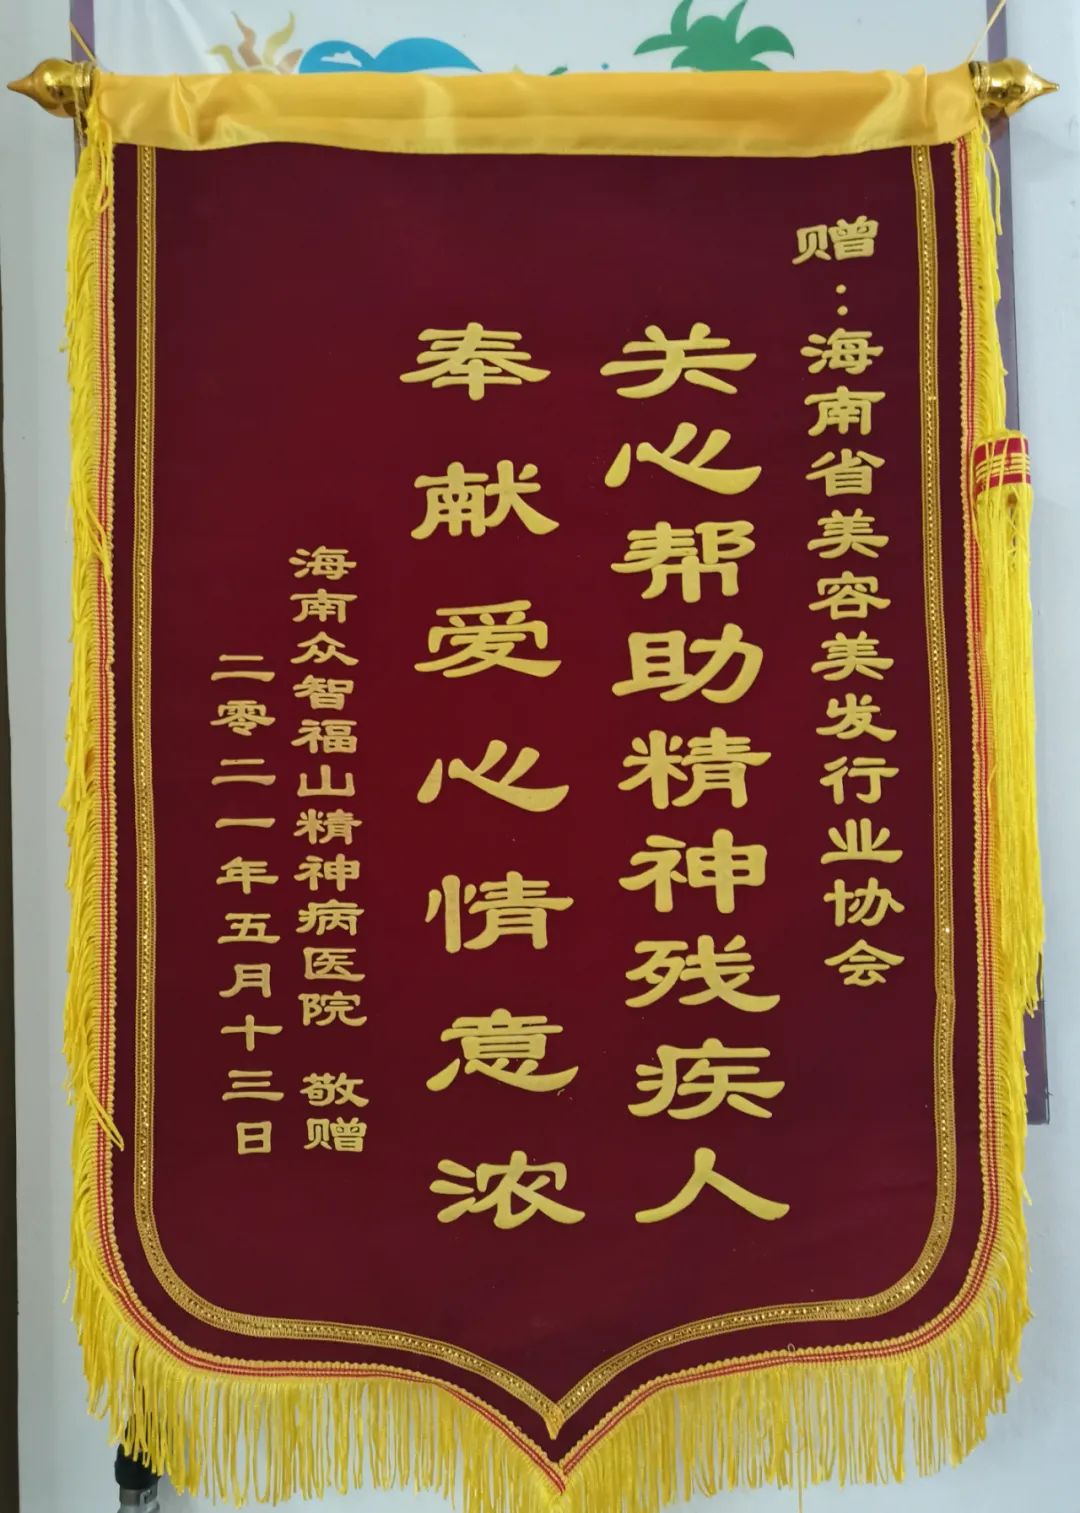 赠：海南省美容美发行业协会
关心帮助精神残疾人
奉献爱心情意浓
海南众智福山精神病医院 敬赠
二零二一年五月十三日